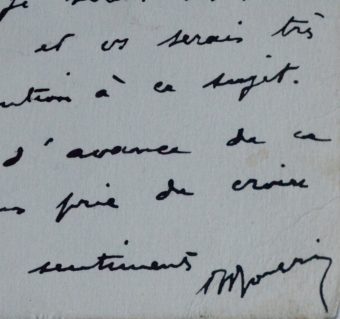 et vs serais très
ution à ce sujet.
d'avance de ce
us prie de croire
sentiments